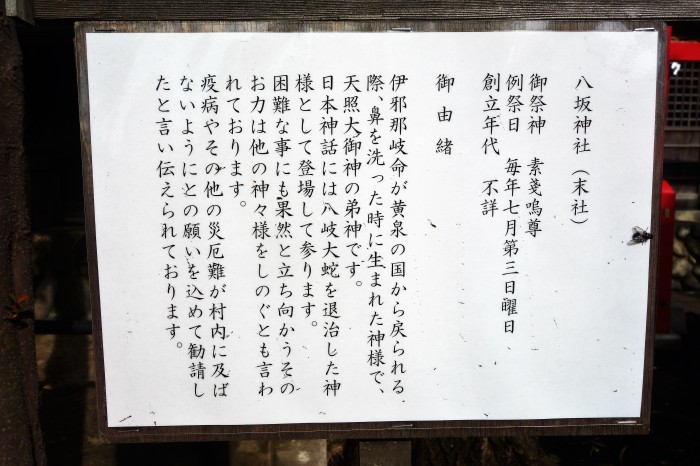 八坂神社（末社）
御祭神　素戔嗚尊
例祭日　毎年七月第三日曜日
創立年代　不詳
御由緒
伊邪那岐命が黄泉の国から戻られる
際、鼻を洗った時に生まれた神様で、
天照大御神の弟神です。
日本神話には八岐大蛇を退治した神
様として登場して参ります。
困難な事にも果然と立ち向かうその
お力は他の神々様をしのぐとも言わ
れております。
疫病やその他の災厄難が村内に及ば
ないようにとの願いを込めて勧請し
たと言い伝えられております。